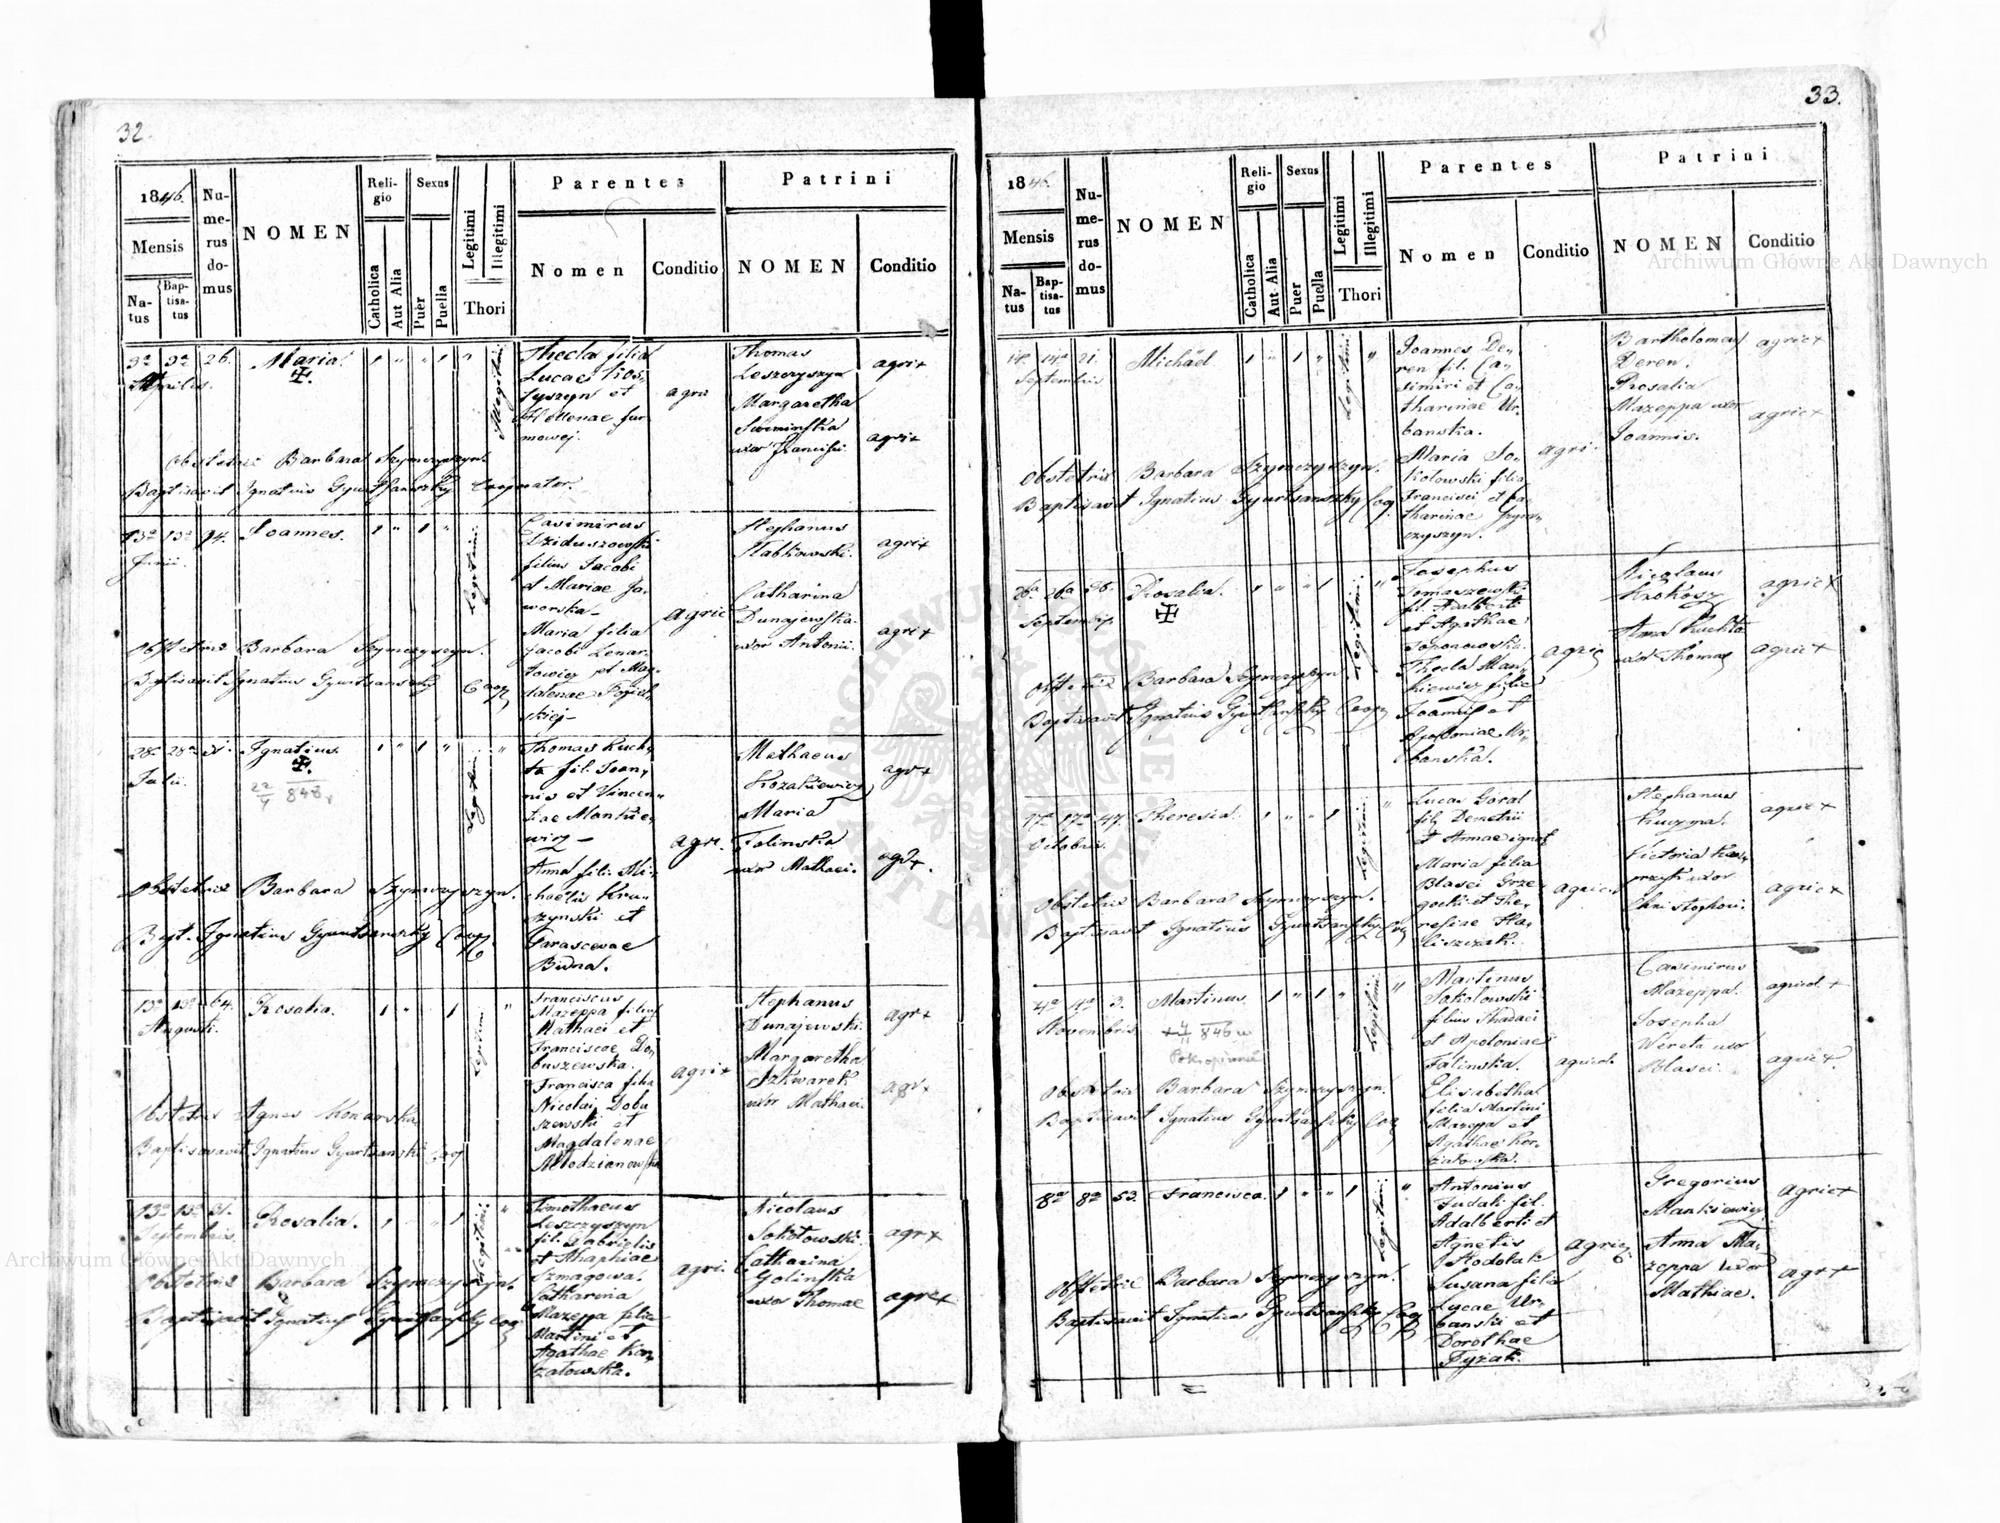 32.
1846.
Mensis
Na-
tus
Bap-
tisa-
tus
Nu-
me-
rus
do-
mus
NOMEN
Reli-
gio
Catholica
Aut Alia
Sexus
Puer
Puella
Legitimi
Illegitimi
Thori
Parentes
Nomen
Conditio
Patrini
NOMEN
Conditio
3a 3a 26. Maria. 1 " " 1 "
Aprilis.
Illegitimi
Thecla filia
Lucae
et
Hellenae
agri
Thomas
Leszczyszyn
Margaretha
uxor Francisci
agri+
agri+
Obstetrix Barbara Szymczyszyn.
Baptisavit Ignatius Gyurtsanszky Cooperator.
13a 13a 94. Joannes. 1 " 1 "
Junii.
Legitimi
Casimirus
Dziduszowski
filius Jacobi
et Mariae Ja-
worska
Maria filia
Jacobi Lenar-
towicz et Mag-
dalenae
agric
Stephanus
Slabkowski.
Catharina
Dunajewska
uxor Antonii
agri+
agri+
Obstetrix Barbara Szymczyszyn.
Baptisavit Ignatius Gyurtsanszky Coop
28a 28a Ignatius. 1 " 1 " "
Julii.
22/4 848
Legitimi
Thomas Kuch-
ta fil. Joan-
nis et Vincen-
tiae Mankie-
wicz
Anna fil. Mi-
chaelis Kru-
szynski et
Parascevae
Bidna.
agri.
Mathaeus
Kozakiewicz
Maria
Folinska
uxor Mathaei.
agr+
agr+.
Obstetrix Barbara Szymczyszyn.
Bapt. Ignatius Gyurtsanszky Coop
13a 13a 64. Rosalia. 1 " 1 "
Augusti.
Legitimi
Franciscus
Mazeppa filius
Mathaei et
Franciscae Do-
buszewska.
Francisca filia
Nicolai Dobu
szewski et
Magdalenae
Mlodzianowska
agri+
Stephanus
Dunajewski.
Margaretha
Szkwarek
uxor Mathaei.
agr+
agr+
Obstetrix Agnes Konarska
Baptisavit Ignatius Gyurtsanski Coop
13a 13a 31. Rosalia. 1 " 1 "
Septembris.
Legitimi
Timothaeus
Leszczyszyn
fil. Gabrielis
et
Szmagowa.
Catharina
Mazeppa filia
Martini et
Agathae Kor-
zatowska.
agri.
Nicolaus
Sokolowski.
Catharina
Golinska
uxor Thomae
agr+
agri+
Obstetrix Barbara Szymczyszyn.
Baptisavit Ignatius Gyurtsansky Coop
33.
1846.
Mensis
Na-
tus
Bap-
tisa-
tus
Nu-
me-
rus
do-
mus
NOMEN
Reli-
gio
Catholica
Aut Alia
Sexus
Puer
Puella
Legitimi
Illegitimi
Thori
Parentes
Nomen
Conditio
Patrini
NOMEN
Conditio
14a 14a 21. Michäel 1 " 1 " "
Septembris
Legitimi
Joannes De-
ren fil. Ca-
simiri et Ca-
tharinae Ur-
banska.
Maria So-
kolowski filia
Francisci et Ca-
tharinae Szym-
czyszyn.
agri.
Bartholomeus
Deren.
Rosalia
Mazeppa uxor
Joannis.
agric+
agric+
Obstetrix Barbara Szymczyszyn.
Baptisavit Ignatius Gyurtsanszky Coop.
26a 26a 28. Rosalia. 1 " " 1 "
Septembr.
Legitimi
Josephus
Tomaszewski
fil. Adalberti
et Agathae
Toponowska.
Thecla Man-
kiewicz filia
Joannis et
Apoloniae Ur-
banska.
agric
Nicolaus
Krokosz
Anna Kuchta
uxor Thomae
agric+
agric+
Obstetrix Barbara Szymczyszyn
Baptisavit Ignatius Gyurtsansky Coop
17a 17a 47. Theresia. 1 " " 1 "
Octobris.
Legitimi
Lucas Goral
fil. Demetrii
et Annae ignot
Maria filia
Blasei Grze-
gocki et The-
resiae Ha-
liszczak.
agric.
Stephanus
Kuzma.
Victoria
uxor
Christophori.
agric+
agric+
Obstetrix Barbara Szymczyszyn.
Baptisavit Ignatius Gyurtsansky Coop
4a 4a 3. Martinus. 1 " 1 " "
Novembris
+ 4/11 846
Legitimi
Martinus
Sakolowski
filius Thadaei
et Apoloniae
Falinska.
Elisabetha
filia Martini
Mazeppa et
Agathae Kor-
zatowska.
agricol.
Casimirus
Mazeppa.
Josepha
Wereta uxor
Blasei.
agricol.+
agric+
Obstetrix Barbara Szymczyszyn.
Baptisavit Ignatius Gyurtsansky Coop
8a 8a 53. Francisca. 1 " " 1 "
Legitimi
Antonius
Judak fil.
Adalberti et
Agnetis
Hodolak
Susana filia
Lucae Ur-
banski et
Dorothae
Tyzak.
agric.
Gregorius
Mankiewicz
Anna Ma-
zeppa uxor
Mathiae.
agric+
agr+
Obstetrix Barbara Szymczyszyn.
Baptisavit Ignatius Gyurtsansky Coop
Archiwum Główne Akt Dawnych
Archiwum Główne Akt Dawnych
ARCHIWUM GŁÓWNE AKT DAWNYCH